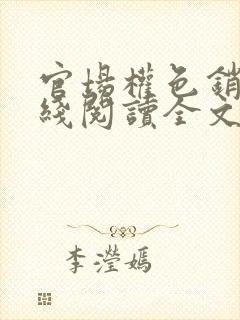 官場權色銷
綫閱讀全文
李瀅嫣